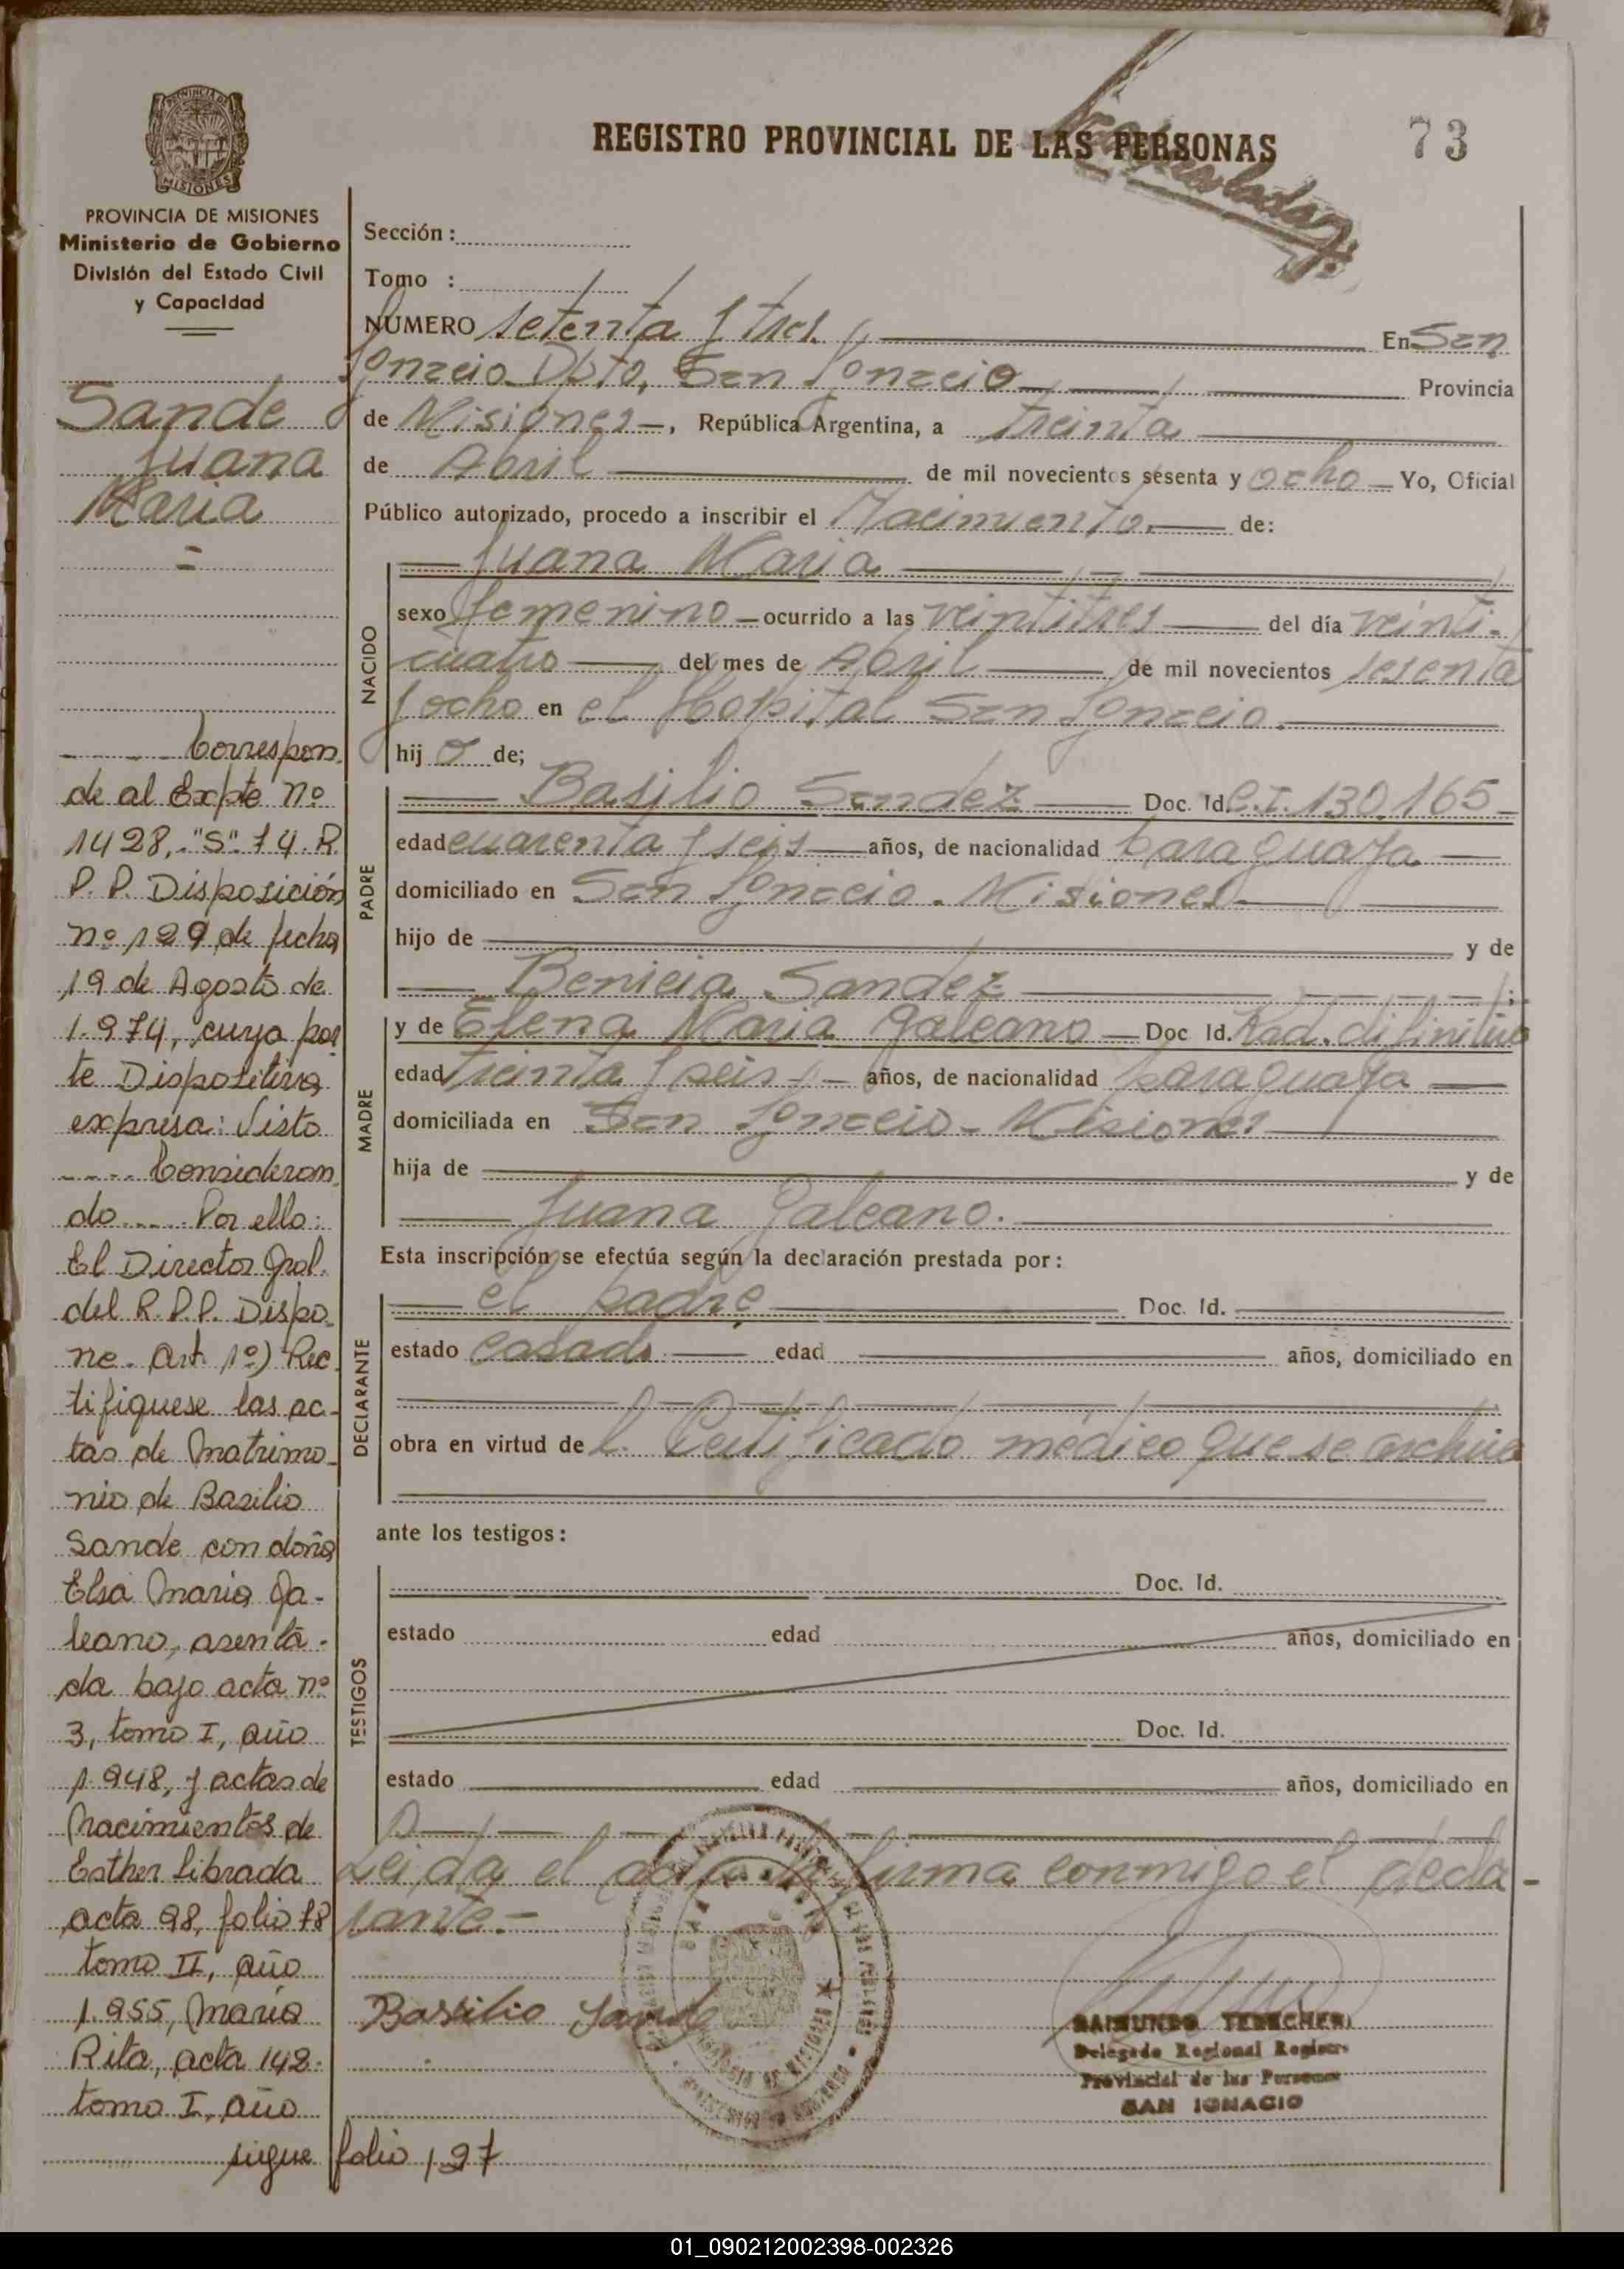 REGISTRO PROVINCIAL DE LAS PERSONAS
73
PROVINCIA DE MISIONES
MISIONES
PROVINCIA DE MISIONES
Ministerio de Gobierno
División del Estado Civil
y Capacidad
Sande
Juana
Maria
=
Correspon
de al Expte nº
1428, "S" 74. R.
P. P. Disposición
nº 129 de fecha
19 de Agosto de
1.974, cuya par
te Dispositiva
expresa: Visto
---- Consideran
do .... Por ello:
El Director Gral.
del R.P.P. Dispo
ne. Art. 1º) Rec
tifiquese las ac-
tas de Matrimo-
nio de Basilio
Sande con doña
Elsa Maria Ga-
leano, asenta-
da bajo acta nº
3, tomo I, año
1.948, y actas de
Nacimientos de
Esther Librada
acta 98, folio 78
tomo II, año
1.955, Maria
Rita, acta 142.
tomo I, año
sigue folio 197
Sección:
Tomo :
NÚMERO setenta y tres. En San
Ignacio Dpto, San Ignacio Provincia
de Misiones, República Argentina, a treinta
de Abril de mil novecientos sesenta y ocho Yo, Oficial
Público autorizado, procedo a inscribir el Nacimiento de:
NACIDO
Juana Maria
sexo femenino ocurrido a las veintitres del día veinti-
cuatro del mes de Abril de mil novecientos sesenta
y ocho en el Hospital San Ignacio.
hij o de;
PADRE
Basilio Sandez Doc. Id. C.I. 130.165
edad cuarenta y seis años, de nacionalidad paraguaya
domiciliado en San Ignacio - Misiones
hijo de y de
Benicia Sandez
MADRE
y de Elena Maria Galeano Doc Id. Rad. difinitivo
edad treinta y seis años, de nacionalidad paraguaya
domiciliada en San Ignacio - Misiones
hija de y de
Juana Galeano.
Esta inscripción se efectúa según la declaración prestada por:
DECLARANTE
el padre Doc. Id.
estado casado edad años, domiciliado en
obra en virtud de l. Certificado médico que se archiva
ante los testigos:
TESTIGOS
Doc. Id.
estado edad años, domiciliado en
Doc. Id.
estado edad años, domiciliado en
Leida el acta la firma conmigo el decla-
rante.-
Basilio Sande
RAIMUNDO
Delegado Regional Registro
Provincial de las Personas
SAN IGNACIO
01_090212002398-002326